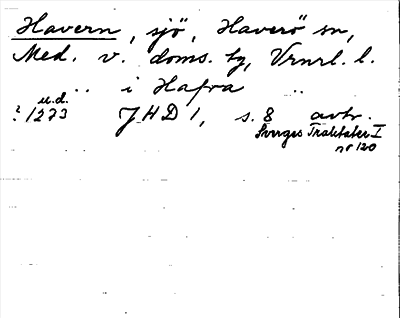 Havern, sjö, Haverö sn,
Med. v. doms. tg, Vrnrl. l.
.. i Hafra ..
u.d.
? 1273 JHD 1, s. 8 avtr.
Sveriges Traktater I
nr 120